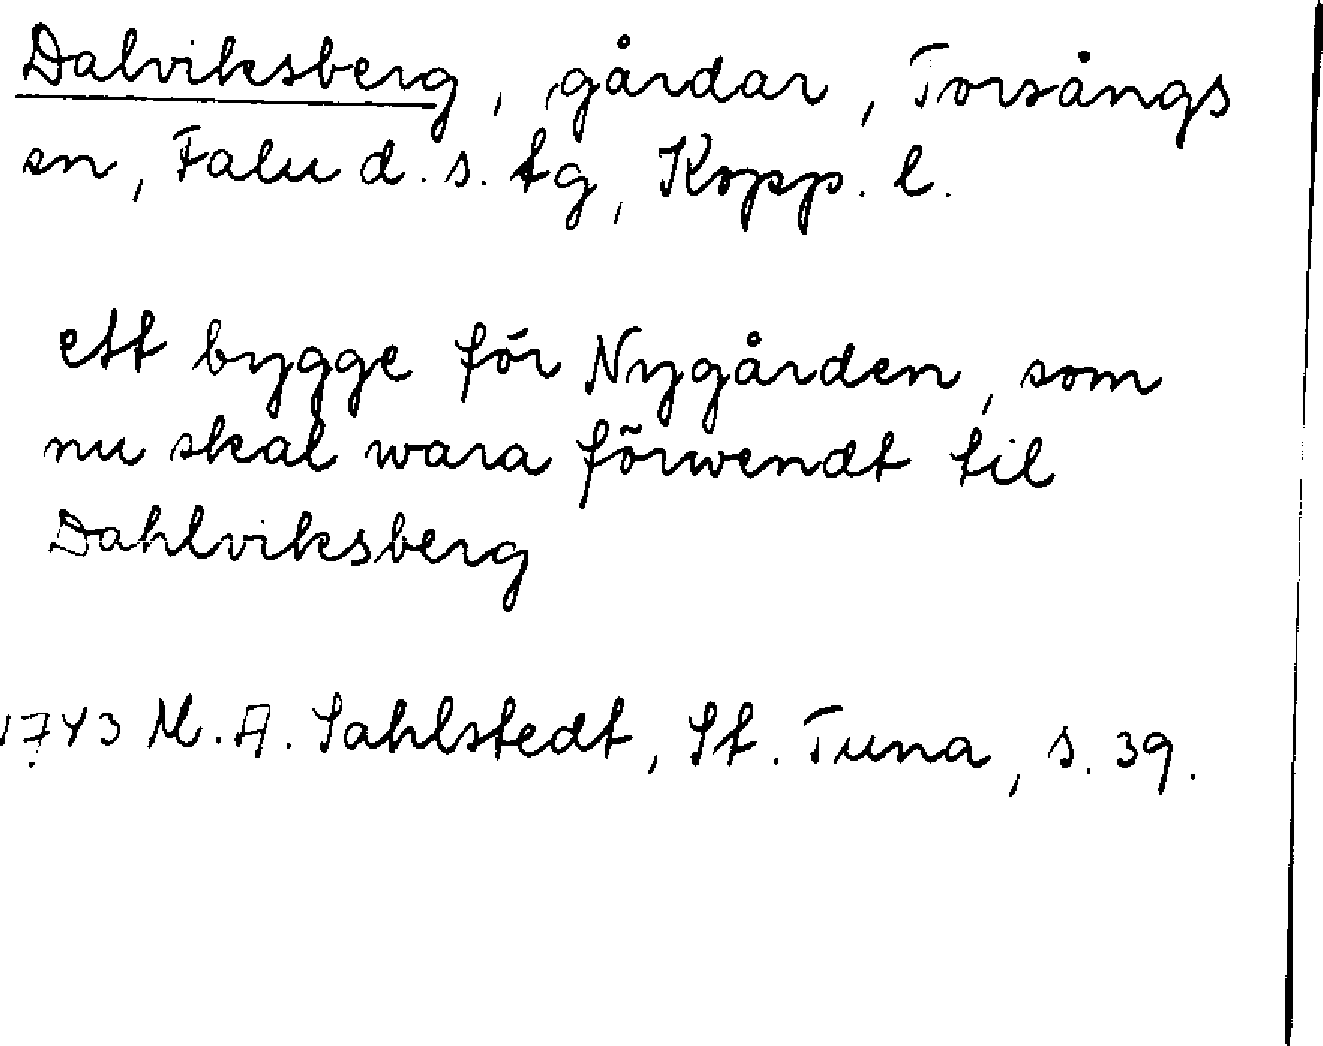 Dalviksberg, gårdar, Torsångs
sn, Falu d. s. tg, Kopp. l.
ett bygge för Nygården, som
nu skal wara förwendt til
Dahlviksberg
1743 M. A. Sahlstedt, St. Tuna, s. 39.